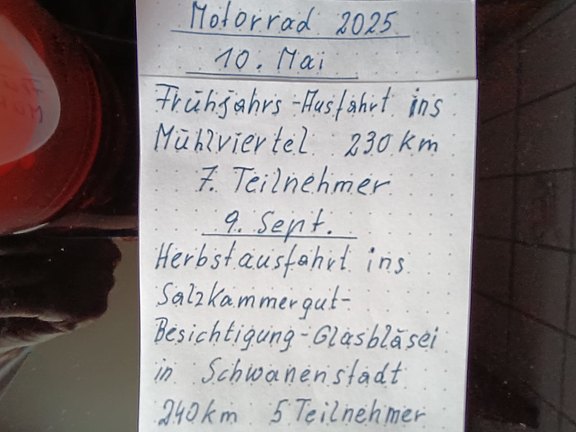 Motorrad 2025
10. Mai
Frühjahrs-Ausfahrt ins
Mühlviertel 230 km
7. Teilnehmer
9. Sept.
Herbstausfahrt ins
Salzkammergut-
Besichtigung-Glasbläsei
in Schwanenstadt
240km 5 Teilnehmer